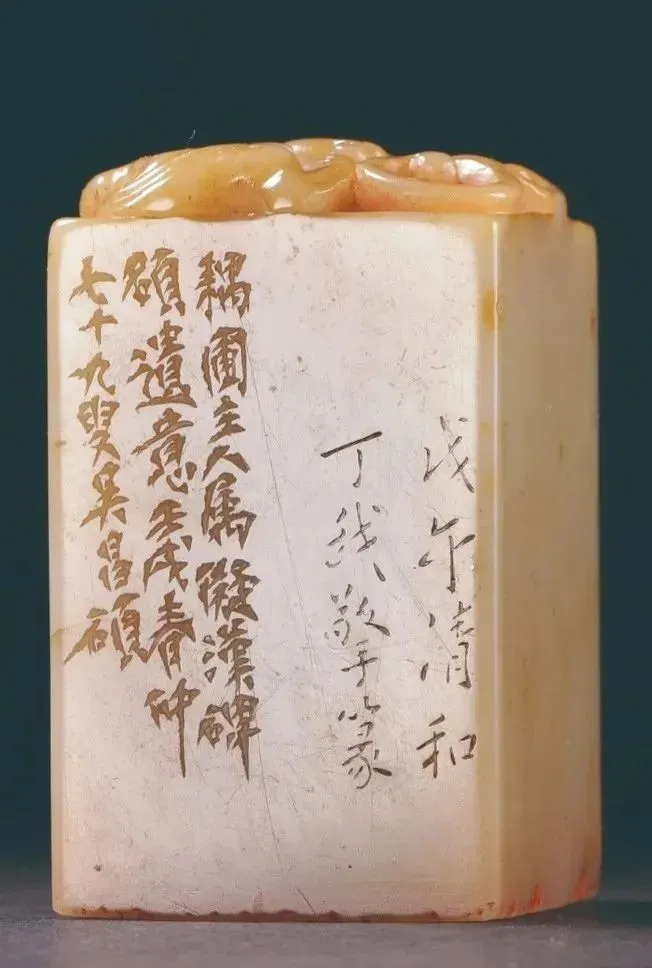 戊午清和
丁擎篆
耦圃主人属擬漢碑
額遺意壬戌春仲
七十九叟吳昌碩